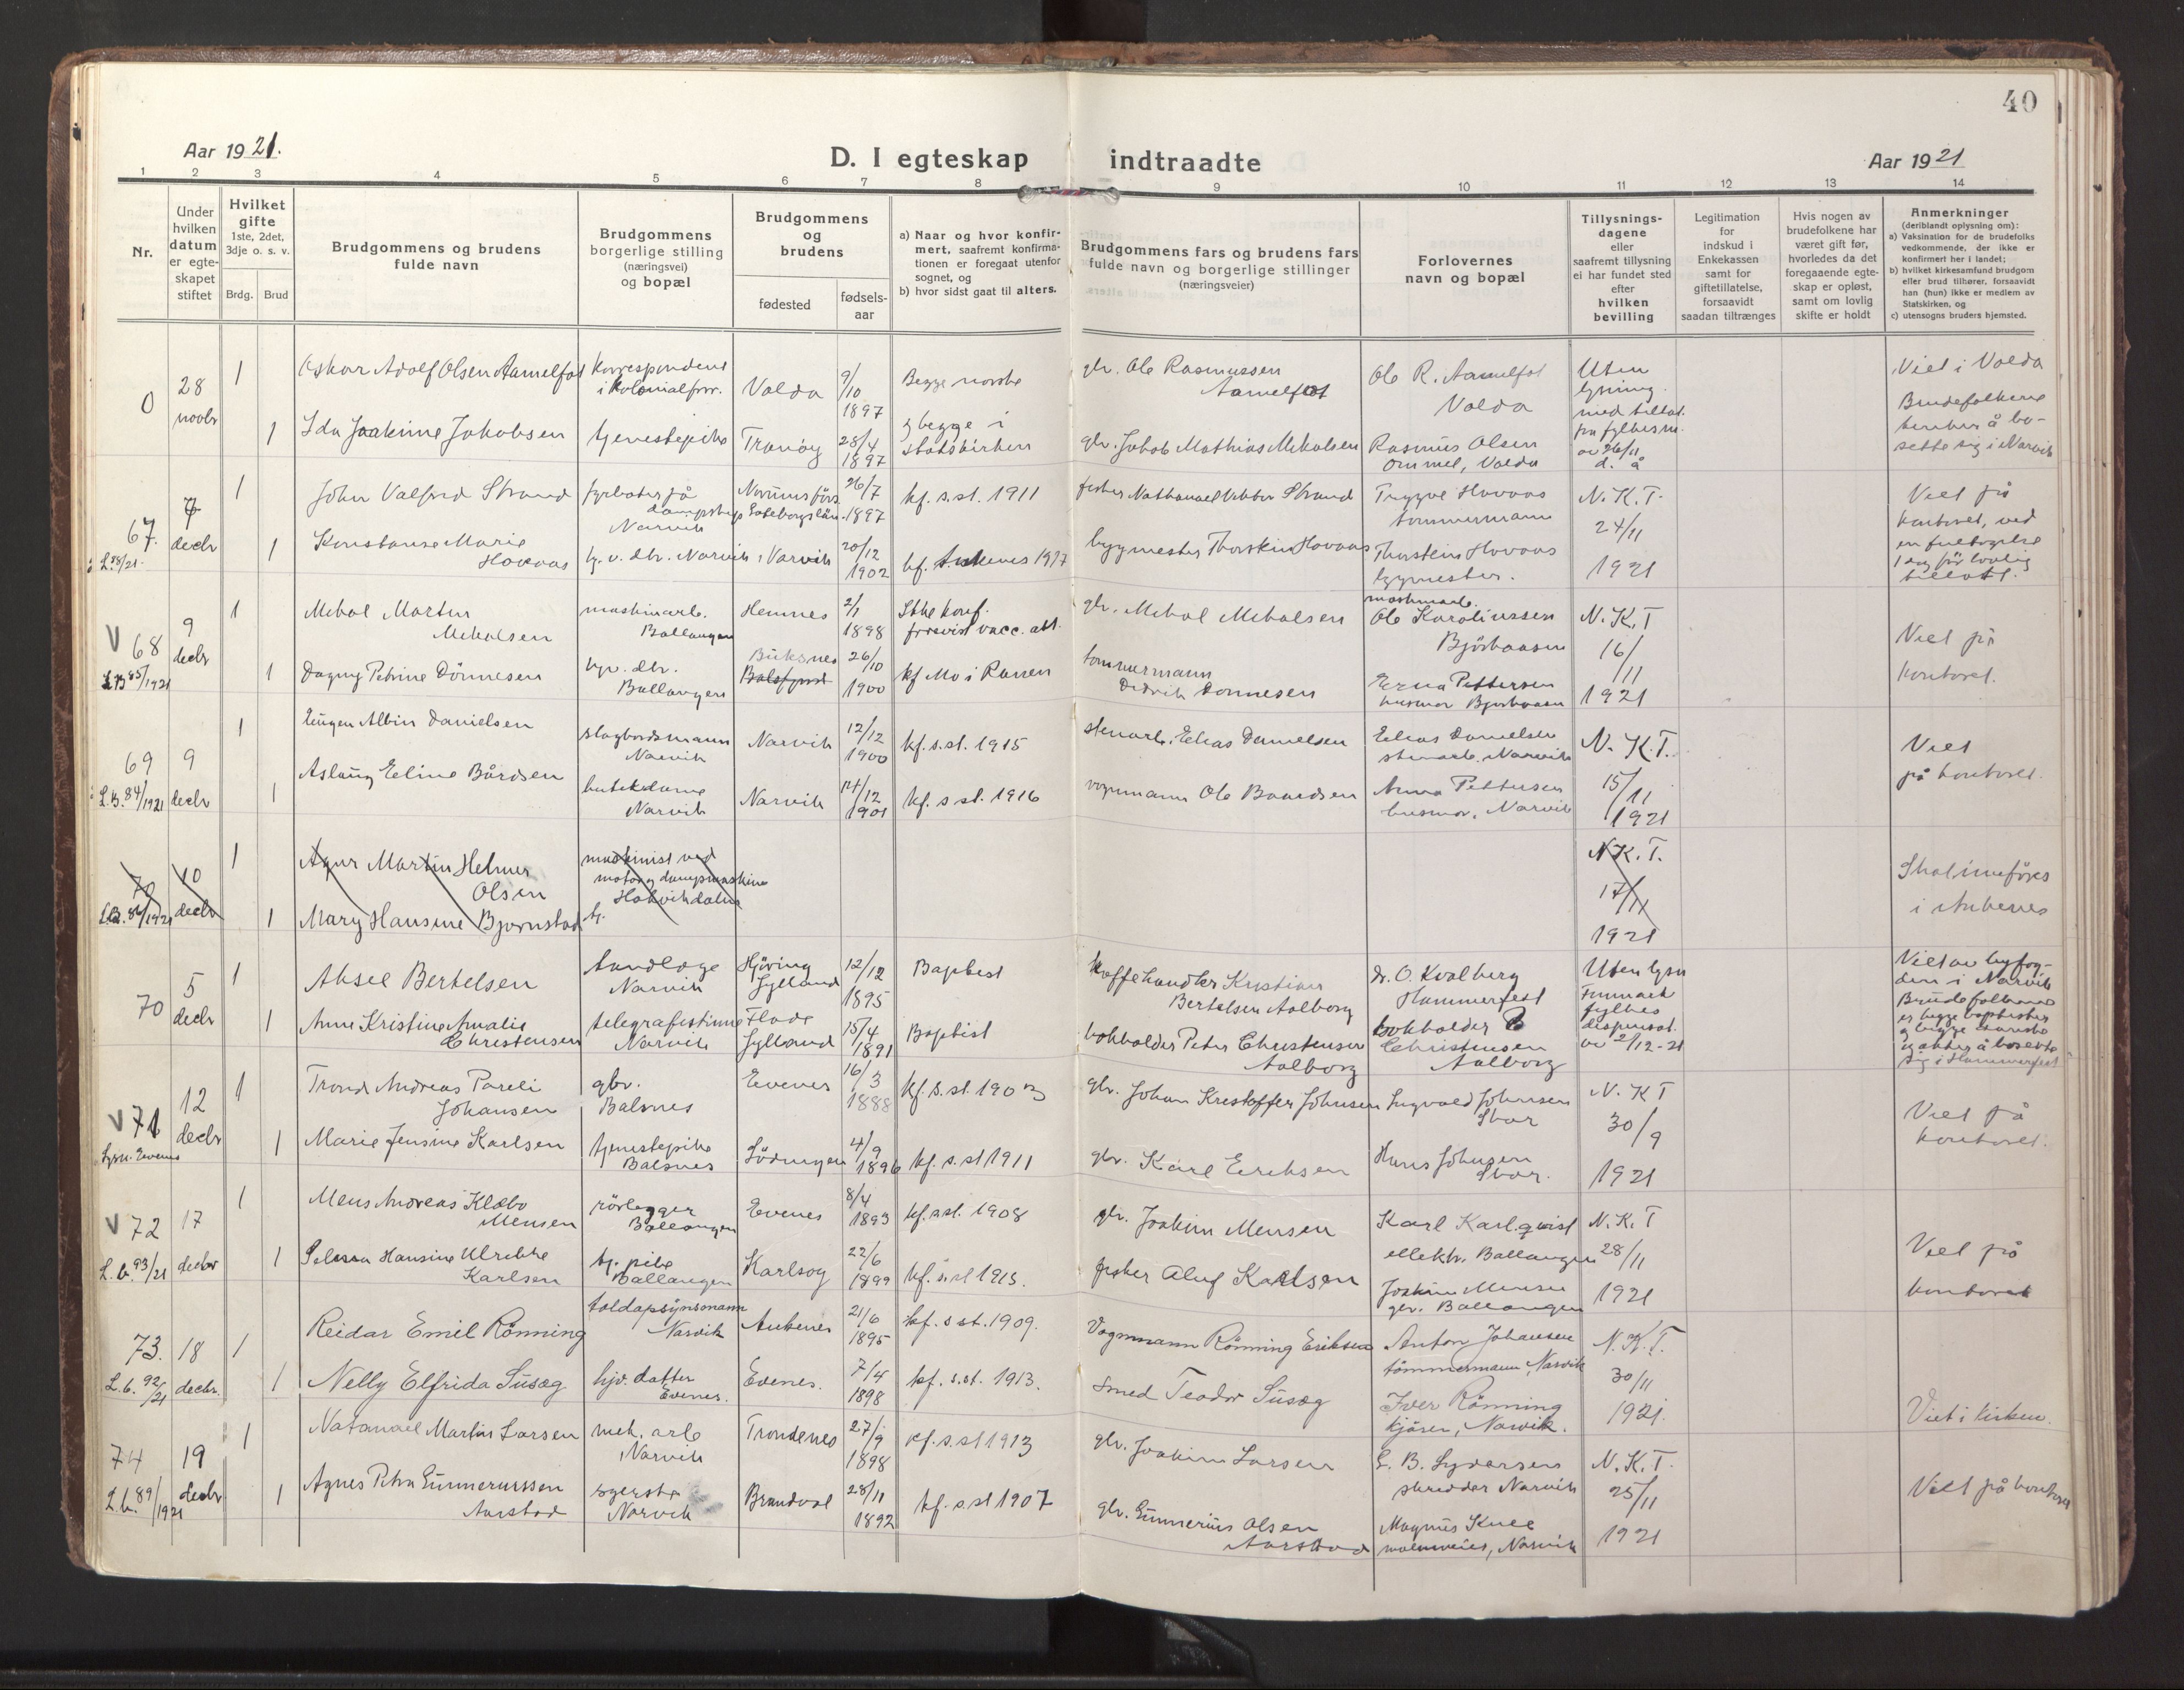 40
Aar 1921.
D. I egteskap indtraadte
Aar 1921
1 2 3 4 5 6 7 8 9 10 11 12 13 14
Nr.
Under
hvilken
datum
er egte-
skapet
stiftet
Hvilket
gifte
1ste, 2det,
3dje o. s. v.
Brdg. Brud
Brudgommens og brudens
fulde navn
Brudgommens
borgerlige stilling
(næringsvei)
og bopæl
Brudgommens
og
brudens
fødested
fødsels-
aar
a) Naar og hvor konfir-
mert, saafremt konfirma-
tionen er foregaat utenfor
sognet, og
b) hvor sidst gaat til alters.
Brudgommens fars og brudens fars
fulde navn og borgerlige stillinger
(næringsveier)
Forlovernes
navn og bopæl
Tillysnings-
dagene
eller
saafremt tillysning
ei har fundet sted
efter
hvilken
bevilling
Legitimation
for
indskud i
Enkekassen
samt for
giftetillatelse,
forsaavidt
saadan tiltrænges
Hvis nogen av
brudefolkene har
været gift før,
hvorledes da det
foregaaende egte-
skap er opløst,
samt om lovlig
skifte er holdt
Anmerkninger
(deriblandt oplysning om):
a) Vaksination for de brudefolks
vedkommende, der ikke er
konfirmert her i landet;
b) hvilket kirkesamfund brudgom
eller brud tilhører, forsaavidt
han (hun) ikke er medlem av
Statskirken, og
c) utensogns bruders hjemsted.
0
28
novbr
1
Oskar Adolf Olsen Aamelfot
Korrespondent
i kolonialforr.
Volda
9/10
1897
Begge norske
gbr. Ole Rasmussen
Aamelfot
Ole R. Aamelfot
Volda
Uten
lysning
med tillat.
fra fylkesm.
av 26/11
d. å
Viet i Volda
Brudefolkene
tenker å bo-
sette sig i Narvik
1
Ida Joakime Jakobsen
tjenestepike
Tranöy
28/4
1897
og begge i
Statskirken
gbr. Jakob Mathias Mikalsen
Rasmus Olsen
Ommel, Volda
67.
L. 88/21
7
decbr
1
John Valfrid Strand
fyrböter på
dampskip
Narvik
Göteborgslän
26/7
1897
kf. s. st. 1911
fisker Nathanael Viktor Strand
Trygve Hovaas
tømmermann
N. K. T.
24/11
1921
Viet på
kontoret, ved
en fuldbyrdelse
1 dag før lovlig
tillatt.
1
Konstanse Marie
Hovaas
Narvik
Narvik
20/12
1902
kf. Ankenes 1917
bygmester Thorstein Hovaas
Thorstein Hovaas
bygmester.
V 68
L.B 85/1921
9
decbr
1
Mikal Martin
Mikalsen
maskinarb.
Ballangen
Hemnes
2/1
1898
Ikke konf.
forevist vacc. att.
gbr. Mikal Mikalsen
maskinarb.
Ole Karoliussen
Björkaasen
N. K. T
16/11
1921
Viet på
kontoret.
1
Dagny Petrine Dönnesen
Ballangen
Buksnes
Balsfjord
26/10
1900
kf Mo i Ranen
tommermann
Didrik Donnesen
Erna Pettersen
husmor Bjorkaasen
69
L.B. 84/1921
9
decbr
1
Eugen Albin Danielsen
slagbordsmann
Narvik
Narvik
12/12
1900
kf. s. st. 1915
stenarb. Elias Danielsen
Elias Danielsen
stenarb. Narvik
N. K. T.
15/11
1921
Viet
på kontoret.
1
Aslaug Eline Bårdsen
butikdame
Narvik
Narvik
14/12
1901
kf. s st. 1916
vognmann Ole Baardsen
Anna Pettersen
husmor, Narvik
70
L.B. 86/1921
10
decbr
1
Agnr Martin Helmer
Olsen
maskinist ved
motor og dampmaskine
Håkvikdalen
N. K. T.
17/11
1921
Skal inføres
i Ankenes
1
Mary Hansine Bjornstad
tj.
70
5
decbr
1
Aksel Bertelsen
tandlæge
Narvik
Hjöring
Jylland
12/12
1895
Baptist
Kaffehandler Kristian
Bertelsen Aalborg
dr. O. Kvalberg
Hammerfest
Uten lysn
Finmark
fylkes
dispensat.
av 2/12-21
Viet av byfog-
den i Narvik
Brudefolkene
er begge baptister
og begge danske
og akter å bosette
sig i Hammerfest
1
Anne Kristine Amalie
Christensen
telegrafistinne
Narvik
Flade
Jylland
15/4
1891
Baptist
bokholder Peter Christensen
Aalborg
bokholder P
Christensen
Aalborg
V 71
Lysn. Evenes
12
decbr
1
Trond Andreas Pareli
Johansen
gbr.
Balsnes
Evenes
16/3
1888
kf. s. st. 1903
gbr. Johan Krestoffer Johnsen
Ingvald Johnsen
Skar
N. K T
30/9
1921
Viet på
kontoret.
1
Marie Jensine Karlsen
tjenestepike
Balsnes
Lödingen
4/9
1896
kf. s. st 1911
gbr. Karl Eriksen
Hans Johnsen
Skar.
V 72
L. b. 93/21
17
decbr
1
Mens Andreas Klæbo
Mensen
rörlegger
Ballangen
Evenes
8/4
1893
kf. s st. 1908
gbr. Joakim Mensen
Karl Karlqvist
elektr. Ballangen
N. K. T
28/11
1921
Viet på
kontoret
1
Hansine Ulrikke
Karlsen
tj. pike
Ballangen
Karlsoy
22/6
1899
kf. s. st 1913.
fisker Aluf Karlsen
Joakim Mensen
gbr. Ballangen
73.
L. b. 92/21
18
decbr.
1
Reidar Emil Rönning
toldopsynsmann
Narvik
Ankenes
21/6
1895
kf. s st. 1909.
Vognmann Rönning Eriksen
Anton Johansen
tömmermann, Narvik
N. K. T.
30/11
1921.
Viet i kirken.
1
Nelly Elfrida Susæg
hjv. datter
Evenes.
Evenes.
7/4
1898
kf. s.st. 1913.
smed Teodor Susæg
Iver Rönning
kjörer, Narvik.
74
L. b. 89/1921
19
decbr
1
Natanael Martin Larsen
mek. arb
Narvik
Trondenes
27/9
1898
kf. s. st 1913
gbr. Joakim Larsen
L. B. Sydersen
skredder Narvik
N. K. T.
25/11
1921
Viet på kontoret
1
Agnes Petra Gunneriussen
Aarstad
syerske
Narvik
Brandvol
28/11
1892
kf. s. st 1907
gbr. Gunnerius Olsen
Aarstad
Magnus Knee
malmveier, Narvik